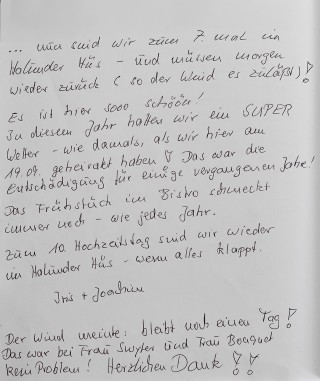 ... nun sind wir zum 7 mal im
Holunder Hüs - und müssen morgen
wieder zurück (so der Wind es zuläßt)!
Es ist hier sooo schööön!
In diesem Jahr hatten wir ein SUPER
Wetter - wie damals, als wir hier am
19.09. geheiratet haben! Das war die
Entschädigung für einige vergangenen Jahre!
Das Frühstück im Bistro schmeckt
immer noch - wie jedes Jahr.
Zum 10. Hochzeitstag sind wir wieder
im Holunder Hüs - wenn alles klappt.
Iris + Joachim
Der Wind meinte: bleibt noch einen Tag!
Das war bei Frau Swyter und Frau Bouquet
kein Problem! Herzlichen Dank!!